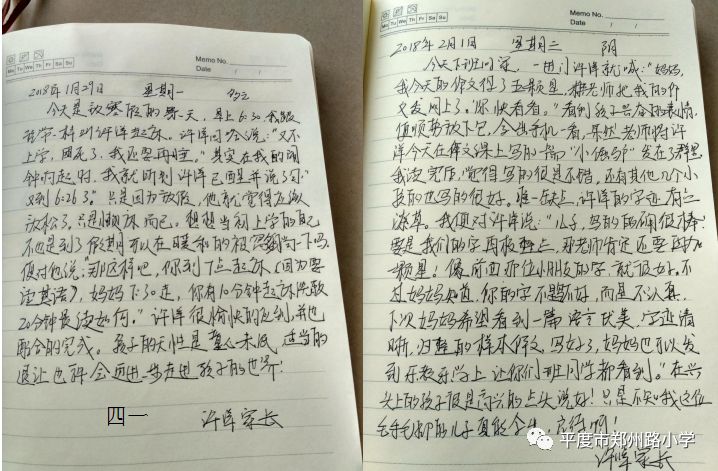 Memo No.
Mo Tu We Th Fr Sa Su
Date / /
2018年1月29日 星期一
今天是放寒假的第一天,早上6:30我跟
往常一样叫许洋起床。许洋闭着眼说:"又不
上学,困死了,我还要再睡。"其实在我的闹
钟响起时,我就听到许洋已醒并说了句"
又到6:26了。"只是因为放假,他就觉得应该
放松了,只是赖床而已。想想当初上学的自己
不也是到了假期可以在暖和的被窝
便对他说:"那这样吧,你到7点起床(因为要
读英语),妈妈7:30走,你有10分钟起床洗漱
20分钟晨读如何。"许洋很愉快的答应,并也
配合的完成。孩子的天性是,适当的
退让也许会再进一步走进孩子的世界!
四一 许洋家长
Memo No.
Mo Tu We Th Fr Sa Su
Date / /
2018年2月1日 星期三 阴
今天下班回家,一进门许洋就喊:"妈妈,
我今天的作文得了五颗星,老师把我的作
文发网上了。你快看看。"看到孩子兴奋的表情,
便顺势放下包,拿出手机一看,果然老师将许
洋今天在作文课上写的一篇"小"发在了群里,
我读完后,觉得写的很是不错,还有其他几个小
孩的也写的很好。唯一缺点,许洋的字迹有些
潦草。我便对许洋说:"儿子,写的的确很棒!
要是我们的字再,那老师肯定还要再加
一颗星!像前面几位小朋友的字,就很好。不
过妈妈知道,你的字不是写不好,而是不认真,
下次妈妈希望看到一篇语言优美,字迹清
晰,的样本作文,写好了,妈妈也可以发
到上让你们班同学都看到。"在兴
头上的孩子很是高兴的点头说好!只是不知我这位
的儿子,!
许洋家长
平度市郑州路小学